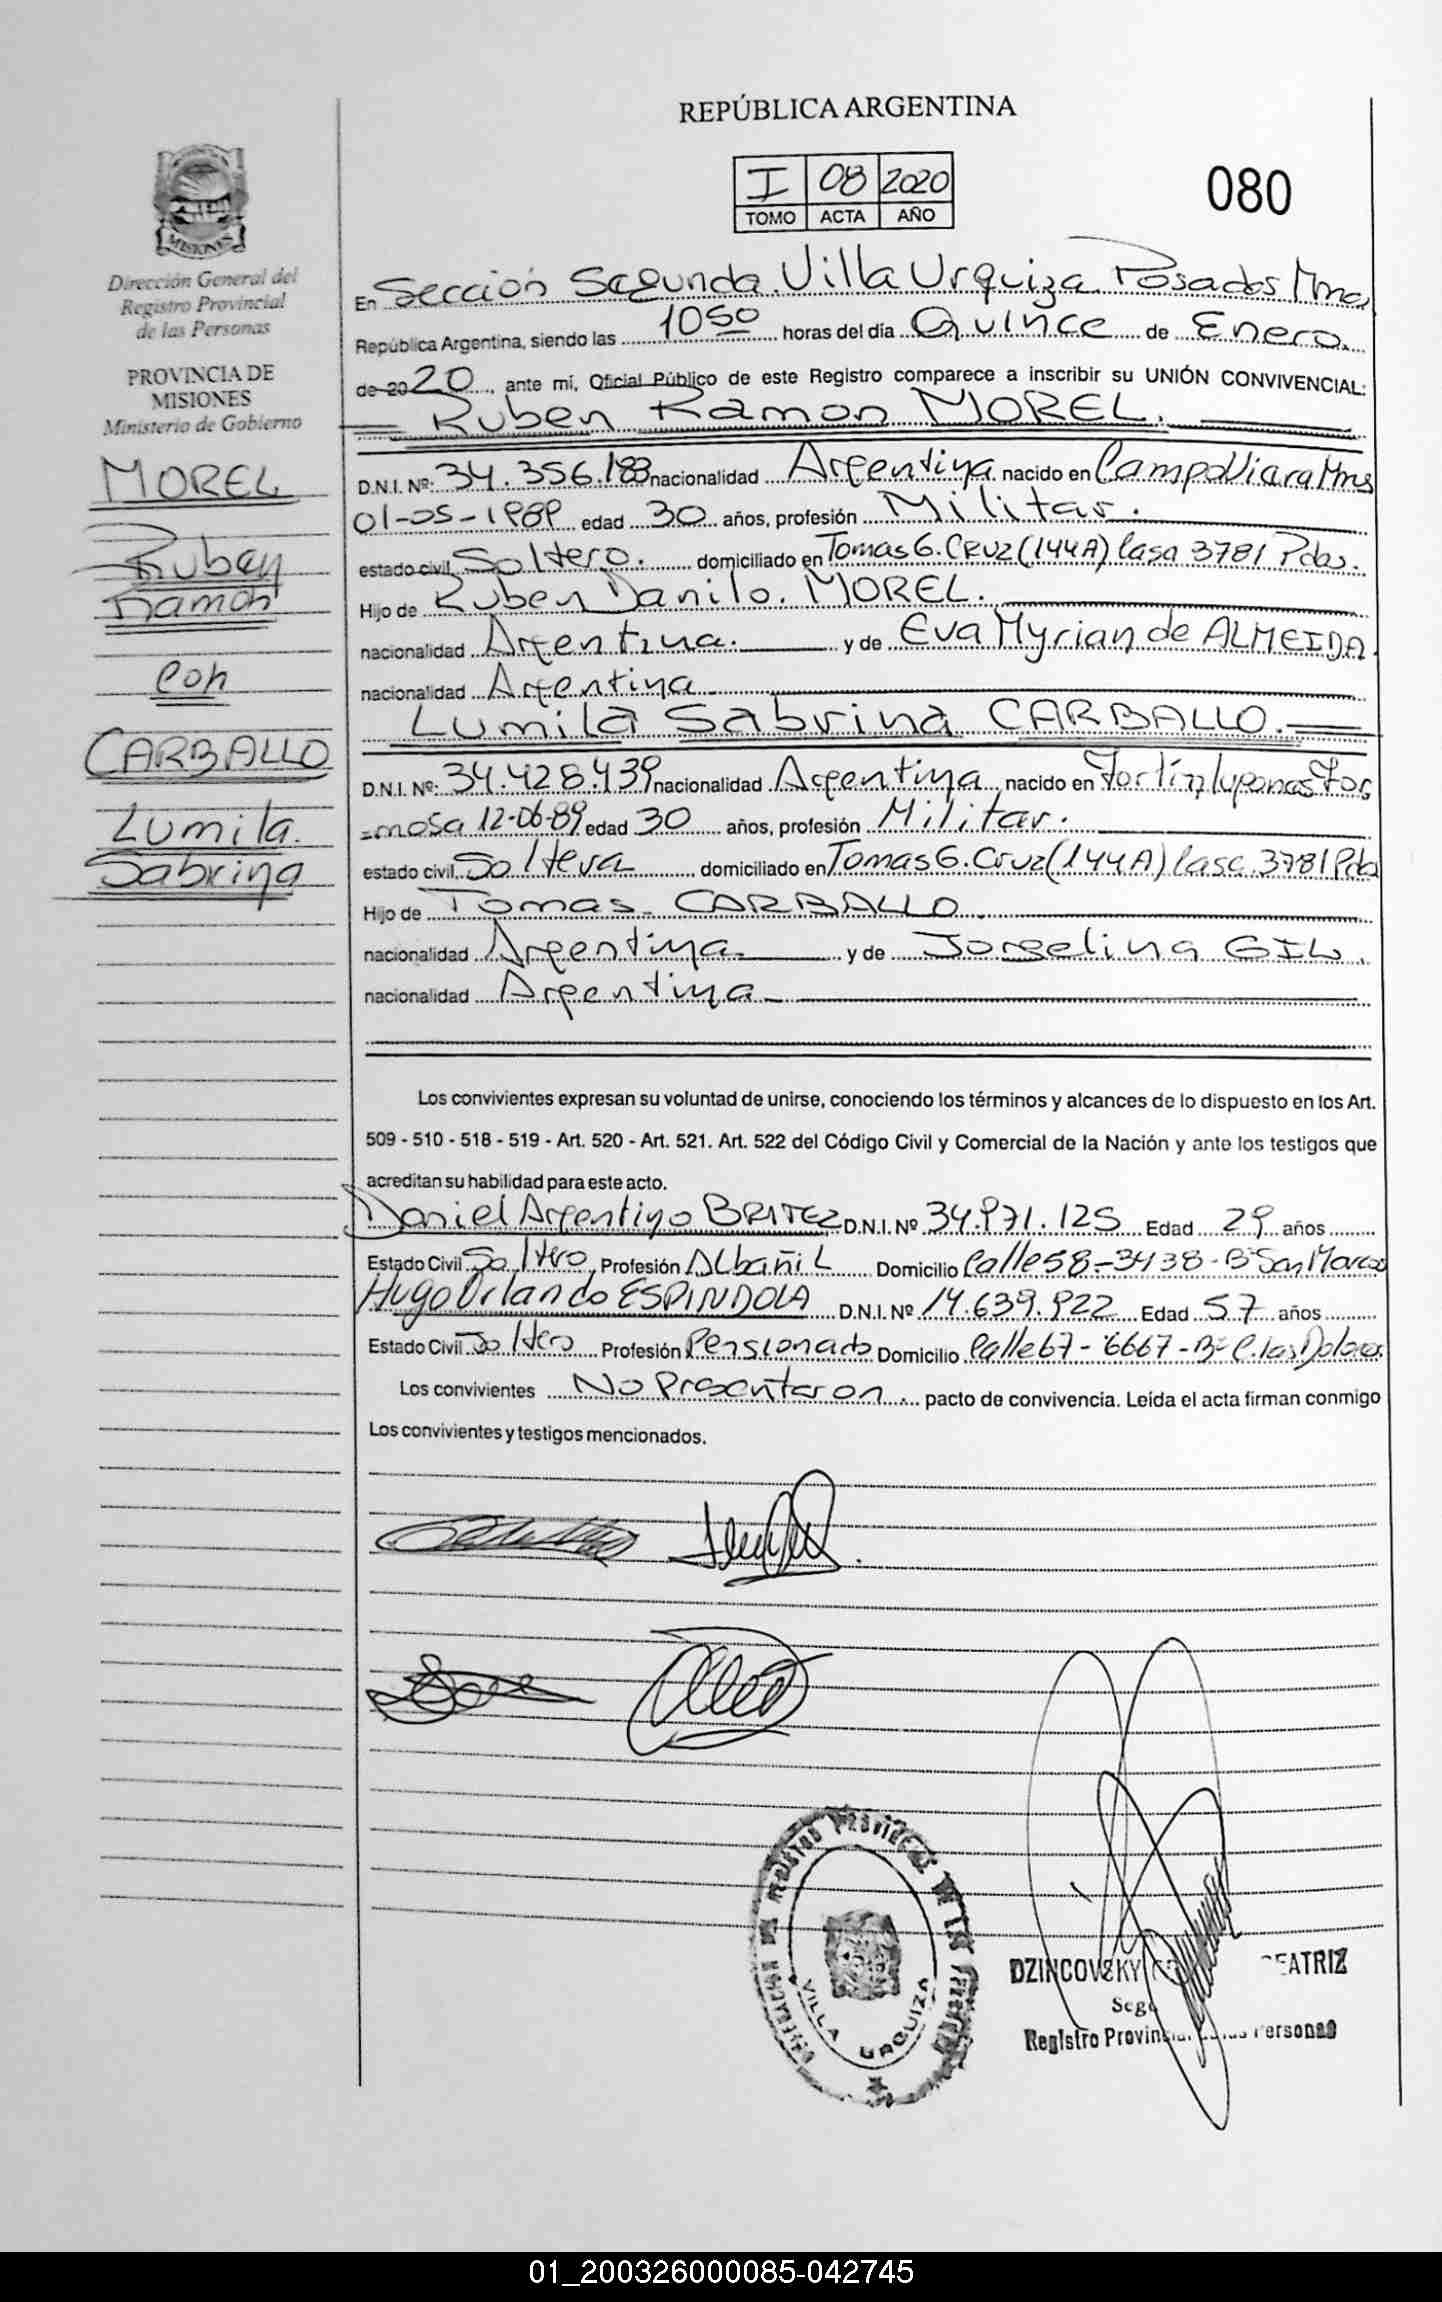 REPÚBLICA ARGENTINA
I 08 2020
TOMO ACTA AÑO
080
MISIONES
Dirección General del
Registro Provincial
de las Personas
PROVINCIA DE
MISIONES
Ministerio de Gobierno
MOREL
Ruben
Ramon
con
CARBALLO
Lumila.
Sabrina
En Sección Segunda Villa Urquiza Posadas Mnes
República Argentina, siendo las 10 50 horas del día Quince de Enero.
de 2020, ante mí, Oficial Público de este Registro comparece a inscribir su UNIÓN CONVIVENCIAL:
Ruben Ramon MOREL.
D.N.I. Nº: 34.356.188 nacionalidad Argentina nacido en Campo Viera Mns
01-05-1989 edad 30 años, profesión Militar.
estado civil Soltero. domiciliado en Tomas G. Cruz (144A) Casa 3781 Pdas.
Hijo de Ruben Danilo. MOREL.
nacionalidad Argentina. y de Eva Myrian de ALMEIDA.
nacionalidad Argentina
Lumila Sabrina CARBALLO.
D.N.I. Nº: 34.428.439 nacionalidad Argentina nacido en Fortín For
mosa 12-06-89 edad 30 años, profesión Militar.
estado civil Soltera domiciliado en Tomas G. Cruz (144A) Casa 3781 Pdas
Hijo de Tomas CARBALLO.
nacionalidad Argentina y de Jorgelina GIL.
nacionalidad Argentina
Los convivientes expresan su voluntad de unirse, conociendo los términos y alcances de lo dispuesto en los Art.
509 - 510 - 518 - 519 - Art. 520 - Art. 521. Art. 522 del Código Civil y Comercial de la Nación y ante los testigos que
acreditan su habilidad para este acto.
Daniel Argentino BRITEZ D.N.I. Nº 34.971.125 Edad 29 años
Estado Civil Soltero Profesión Albañil Domicilio Calle 58-3438-Bº San Marcos
Hugo Orlando ESPINDOLA D.N.I. Nº 14.639.922 Edad 57 años
Estado Civil Soltero Profesión Pensionado Domicilio Calle 67-6667-Bº C. Las Dolores
Los convivientes No Presentaron. pacto de convivencia. Leída el acta firman conmigo
Los convivientes y testigos mencionados.
VILLA URQUIZA
DZINCOVSKY BEATRIZ
Registro Provincial de las Personas
01_200326000085-042745